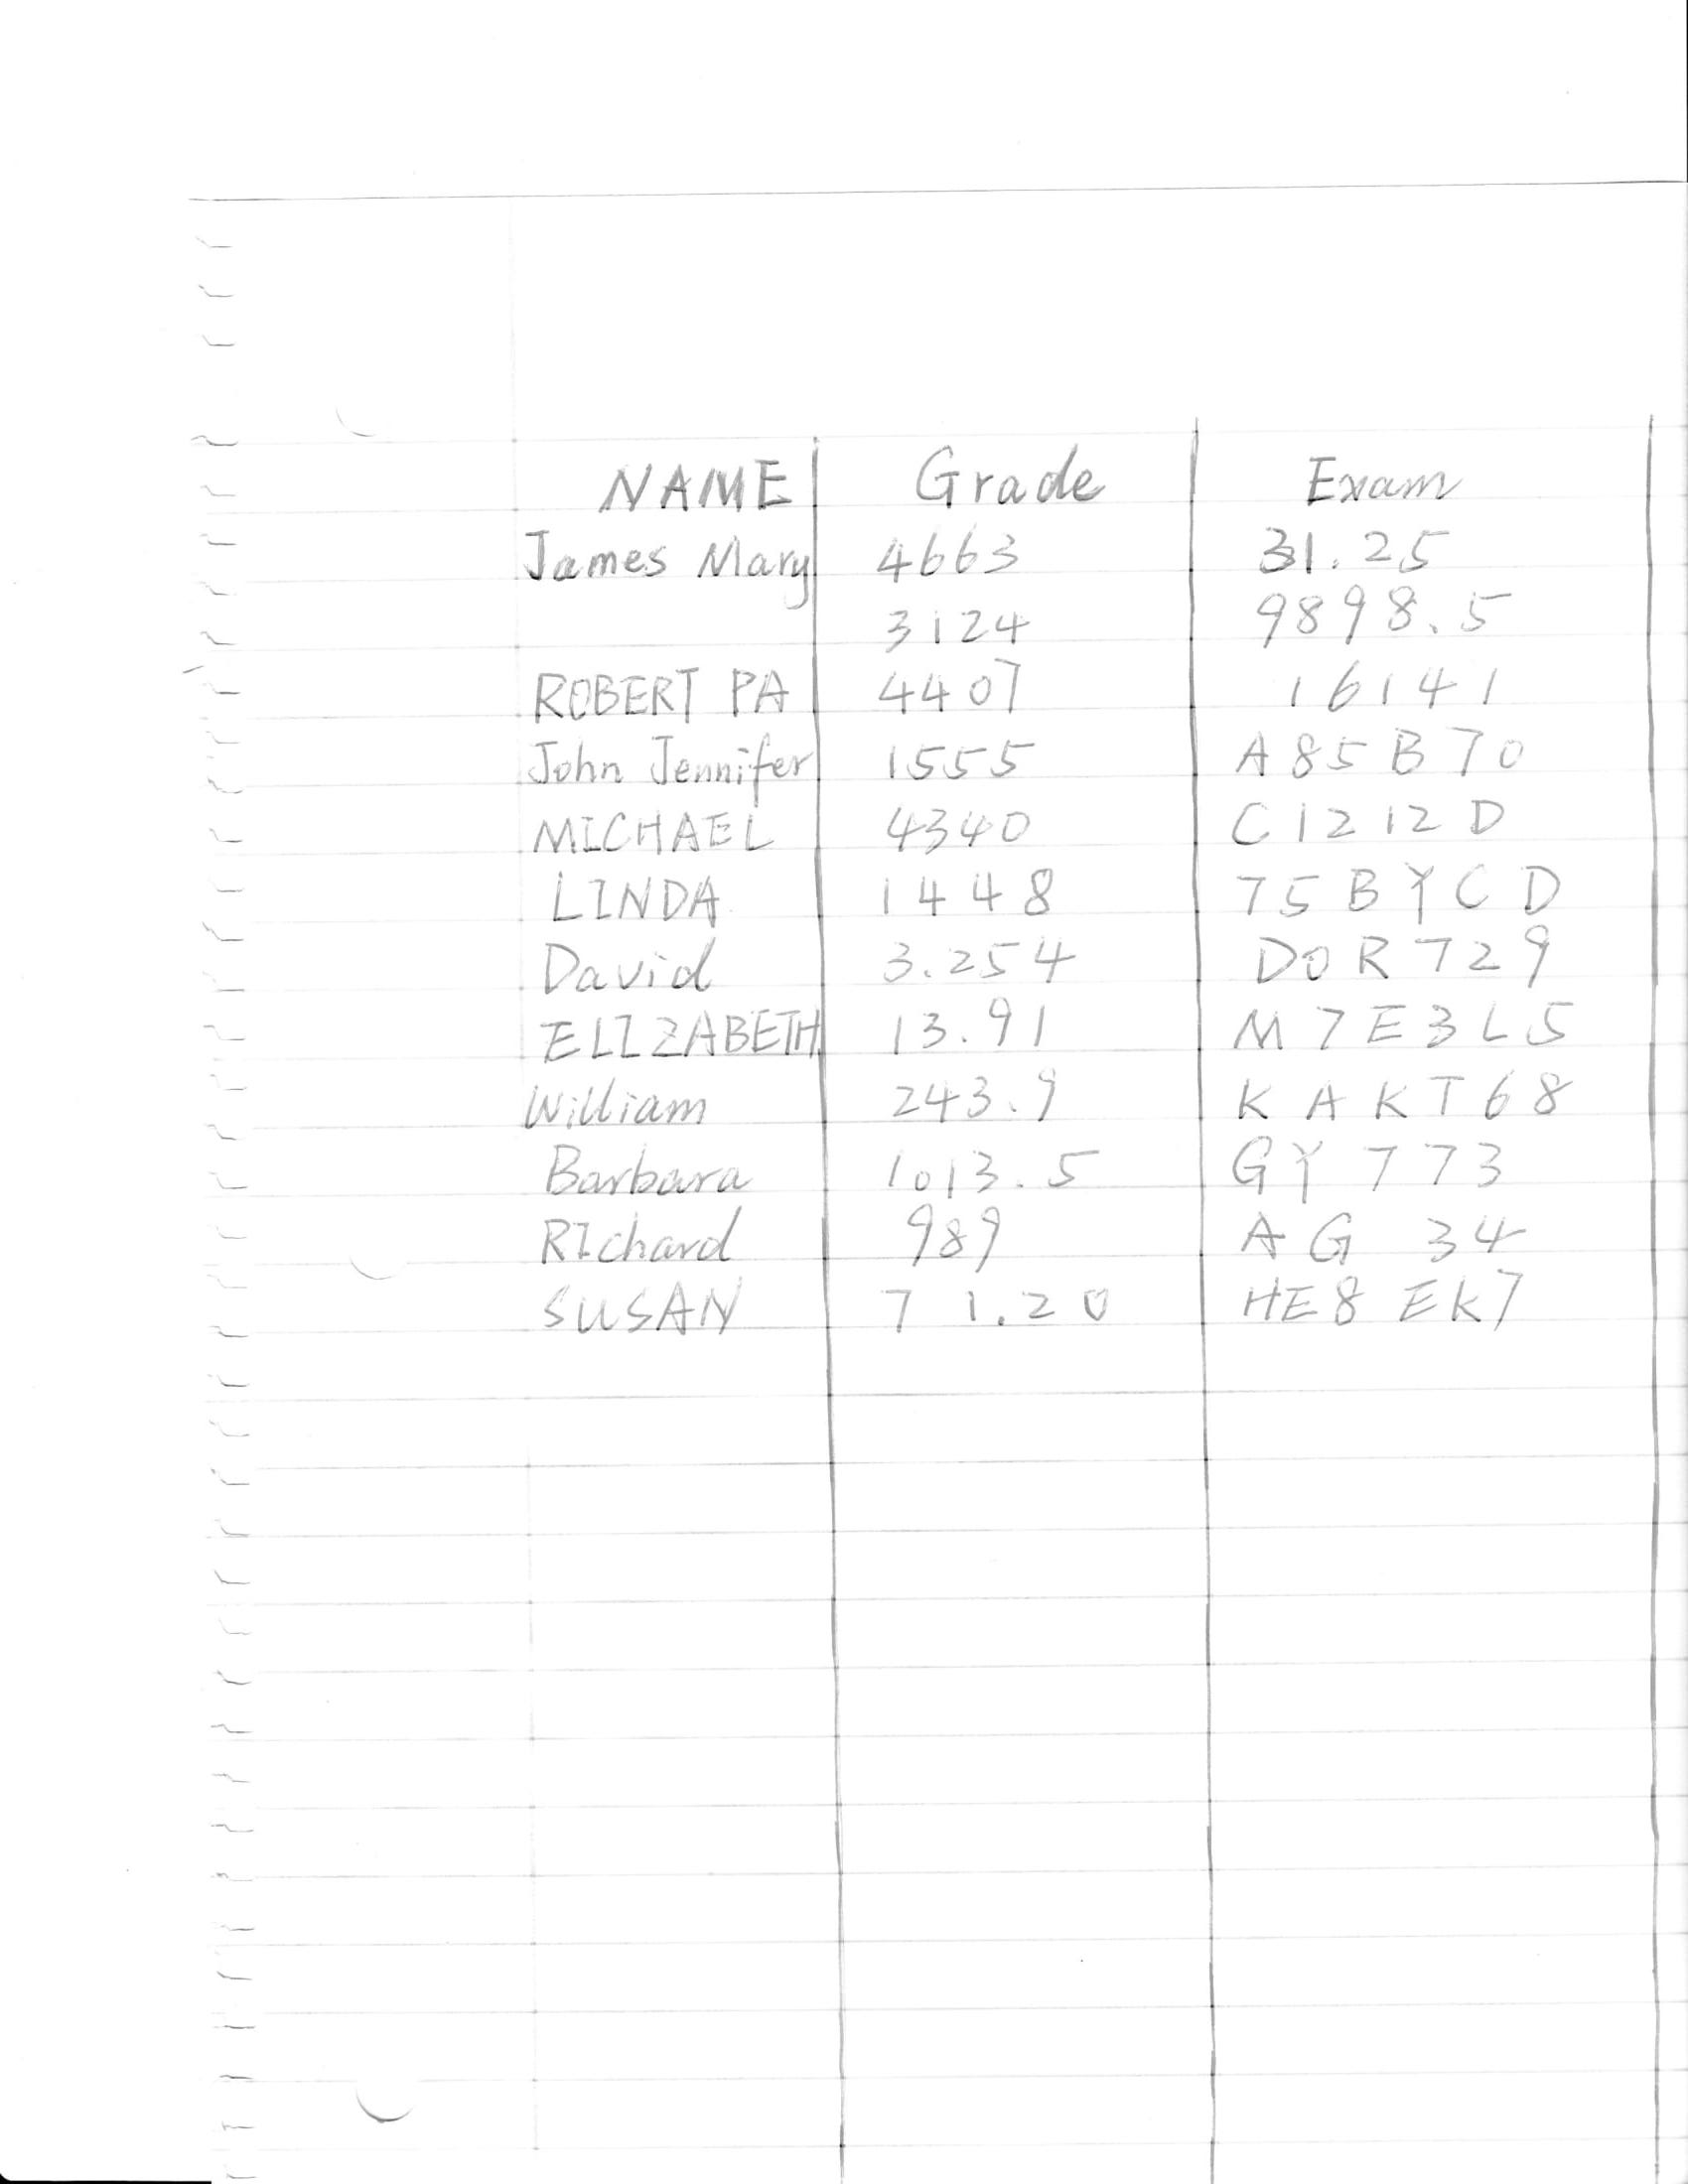 NAME Grade Exam
James Mary 4663 31.25
3124 9898.5
ROBERT PA 4407 16141
John Jennifer 1555 A85B70
MICHAEL 4340 C1212D
LINDA 1448 75BYCD
David 3.254 DOR729
ELIZABETH 13.91 M7E3L5
William 243.9 KAKT68
Barbara 1013.5 GY773
RIchard 989 AG 34
SUSAN 71.20 HE8EK7